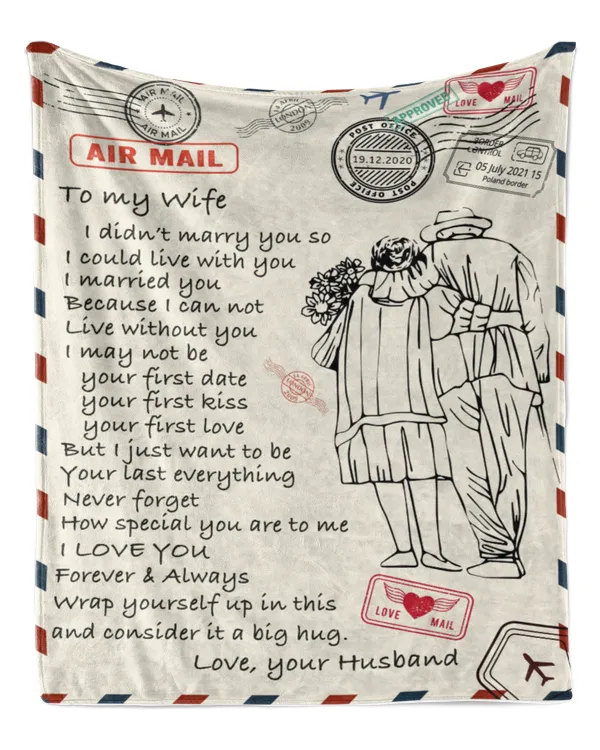 AIR MAIL
AIR MAIL
LONDON
2009
APPROVED
LOVE MAIL
POST OFFICE
19.12.2020
POST OFFICE
BORDER
CONTROL
05 July 2021 15
Poland border
AIR MAIL
To my Wife
I didn't marry you so
I could live with you
I married you
Because I can not
Live without you
I may not be
your first date
your first kiss
your first love
But I just want to be
Your last everything
Never forget
How special you are to me
I LOVE YOU
Forever & Always
Wrap yourself up in this
and consider it a big hug.
Love, your Husband
LONDON
LOVE MAIL